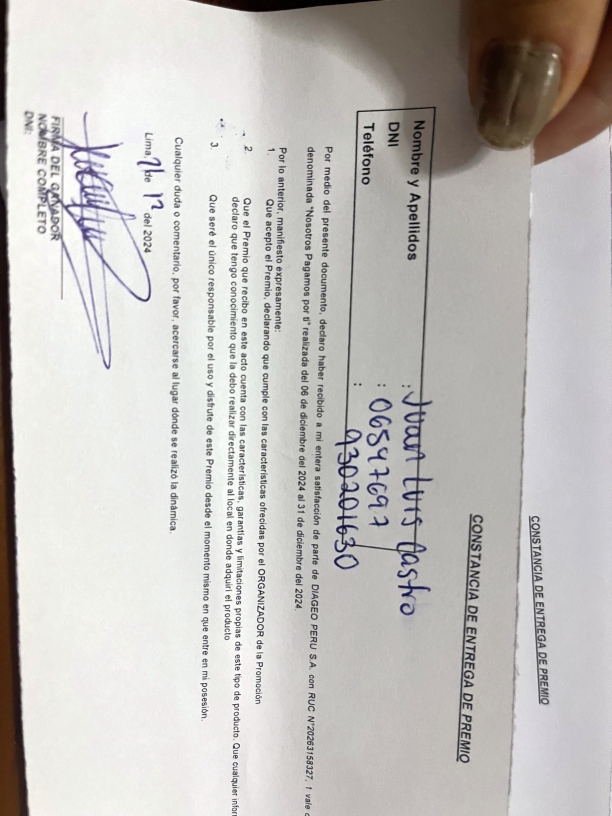 CONSTANCIA DE ENTREGA DE PREMIO
CONSTANCIA DE ENTREGA DE PREMIO
Nombre y Apellidos : Juan Luis Castro
DNI : 06547697
Teléfono : 930201630
Por medio del presente documento, declaro haber recibido a mi entera satisfacción de parte de DIAGEO PERU S.A. con RUC N°20263158327, 1 vale
denominada "Nosotros Pagamos por ti" realizada del 06 de diciembre del 2024 al 31 de diciembre del 2024.
Por lo anterior, manifiesto expresamente:
1. Que acepto el Premio, declarando que cumple con las características ofrecidas por el ORGANIZADOR de la Promoción
2. Que el Premio que recibo en este acto cuenta con las características, garantías y limitaciones propias de este tipo de producto. Que cualquier
declaro que tengo conocimiento que la debo realizar directamente al local en donde adquirí el producto
3. Que seré el único responsable por el uso y disfrute de este Premio desde el momento mismo en que entre en mi posesión.
Cualquier duda o comentario, por favor, acercarse al lugar dónde se realizó la dinámica.
Lima, 21 de 12 del 2024
FIRMA DEL GANADOR
NOMBRE COMPLETO
DNI: